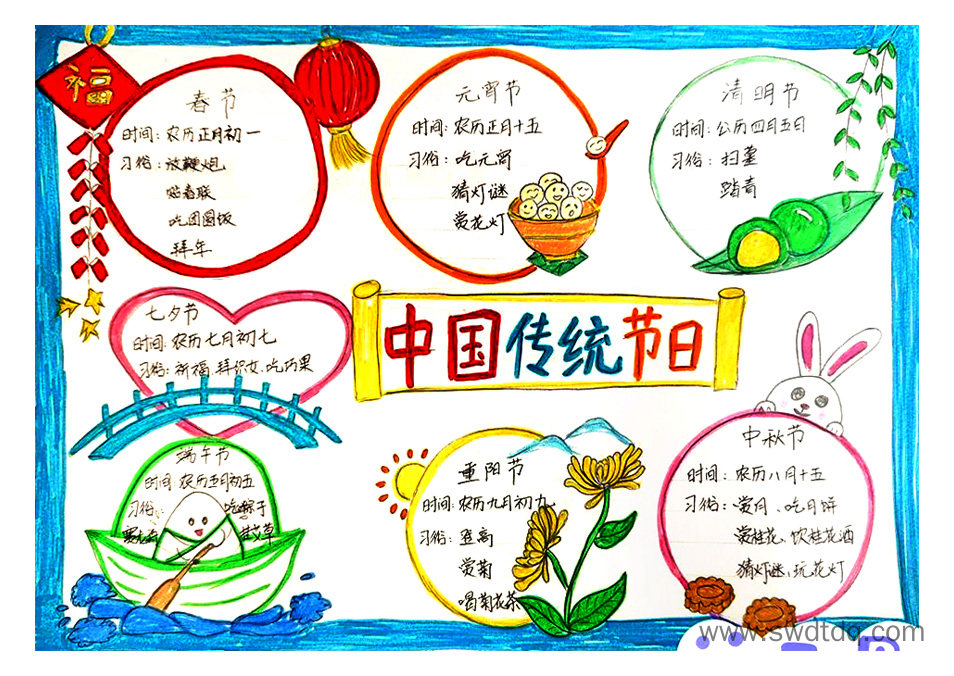 福
春节
时间：农历正月初一
习俗：放鞭炮
贴春联
吃团圆饭
拜年
元宵节
时间：农历正月十五
习俗：吃元宵
猜灯谜
赏花灯
清明节
时间：公历四月五日
习俗：扫墓
踏青
七夕节
时间：农历七月初七
习俗：祈福、拜织女、吃巧果
中国传统节日
端午节
时间：农历五月初五
习俗：吃粽子
赛龙舟 挂艾草
重阳节
时间：农历九月初九
习俗：登高
赏菊
喝菊花茶
中秋节
时间：农历八月十五
习俗：赏月、吃月饼
赏桂花、饮桂花酒
猜灯谜、玩花灯
www.swdtdq.com